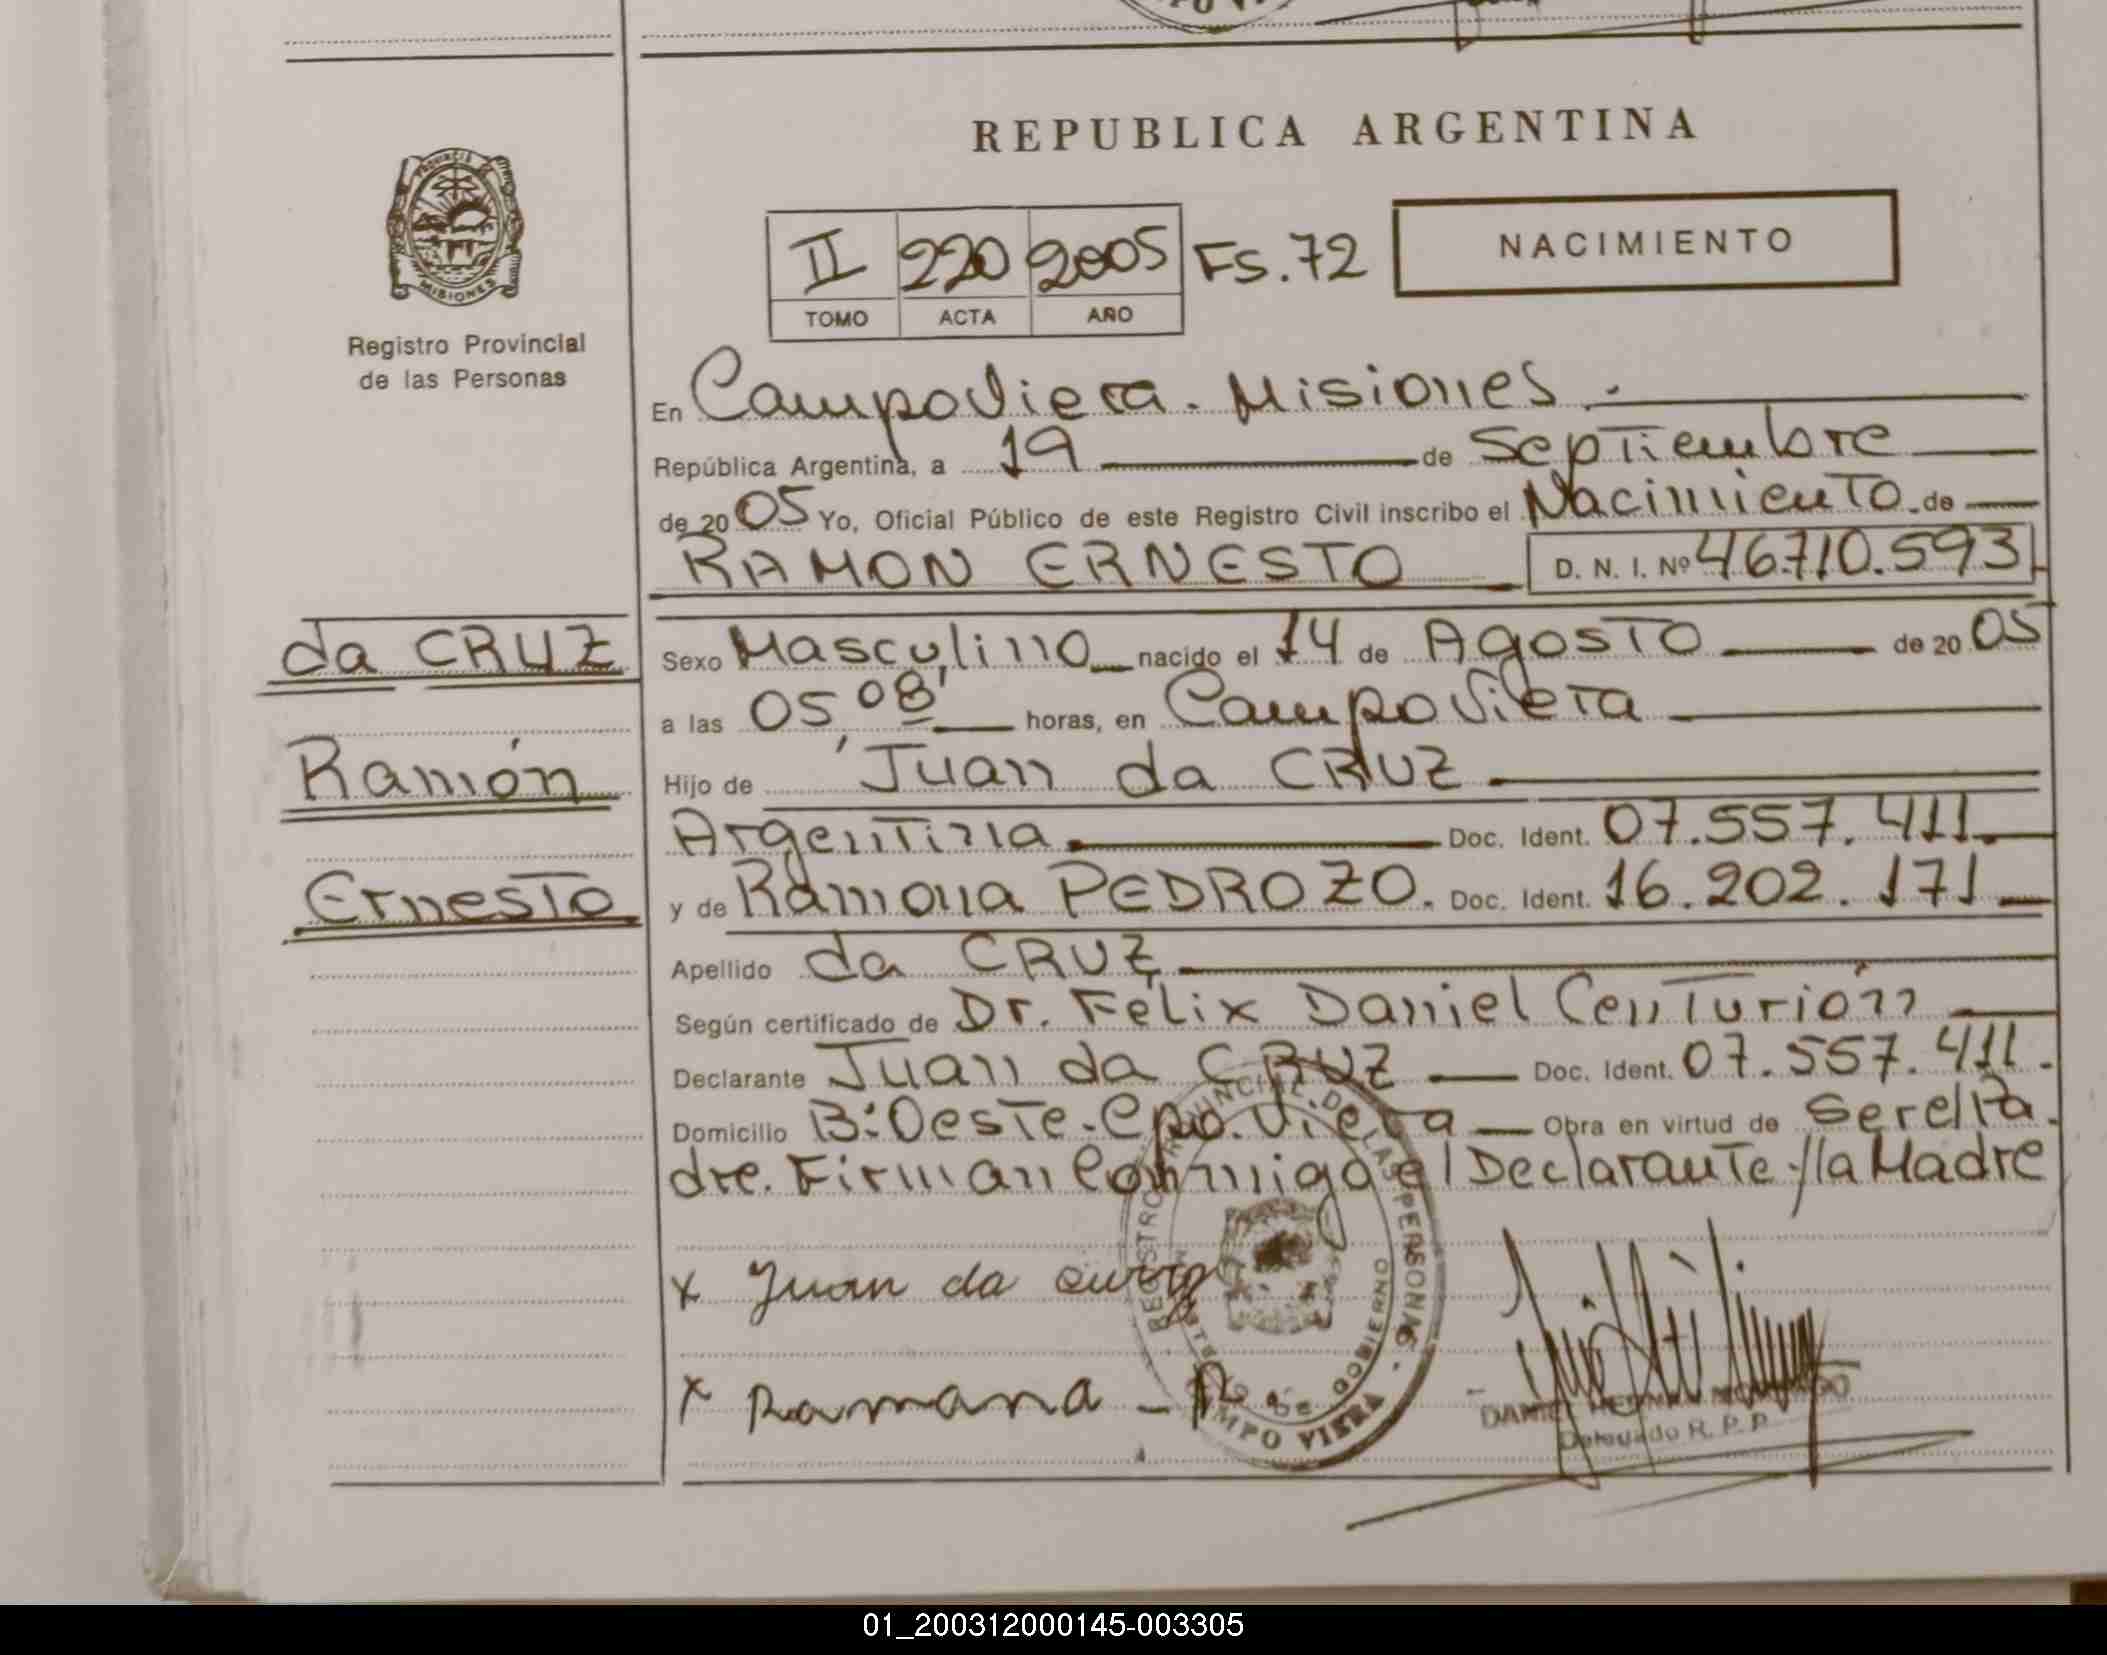 REPUBLICA ARGENTINA
PROVINCIA
MISIONES
Registro Provincial
de las Personas
II 220 2005 Fs. 72
TOMO ACTA AÑO
NACIMIENTO
En Campo Viera. Misiones.
República Argentina, a 19 de Septiembre
de 2005 Yo, Oficial Público de este Registro Civil inscribo el Nacimiento de
RAMON ERNESTO D. N. I. Nº 46.710.593
da CRUZ
Ramón
Ernesto
Sexo Masculino nacido el 14 de Agosto de 2005
a las 05 08' horas, en Campo Viera
Hijo de Juan da CRUZ
Argentina Doc. Ident. 07.557.411.
y de Ramona PEDROZO. Doc. Ident. 16.202.171
Apellido da CRUZ
Según certificado de Dr. Felix Daniel Centurión
Declarante Juan da CRUZ Doc. Ident. 07.557.411.
Domicilio B: Oeste. Cpo. Viera Obra en virtud de Ser el Pa
dre. Firman Conmigo el Declarante y la Madre
x Juan da
x Ramona
REGISTRO PROVINCIAL DE LAS PERSONAS
GOBIERNO
CAMPO VIERA
DANIEL
Delegado R. P. P.
01_200312000145-003305